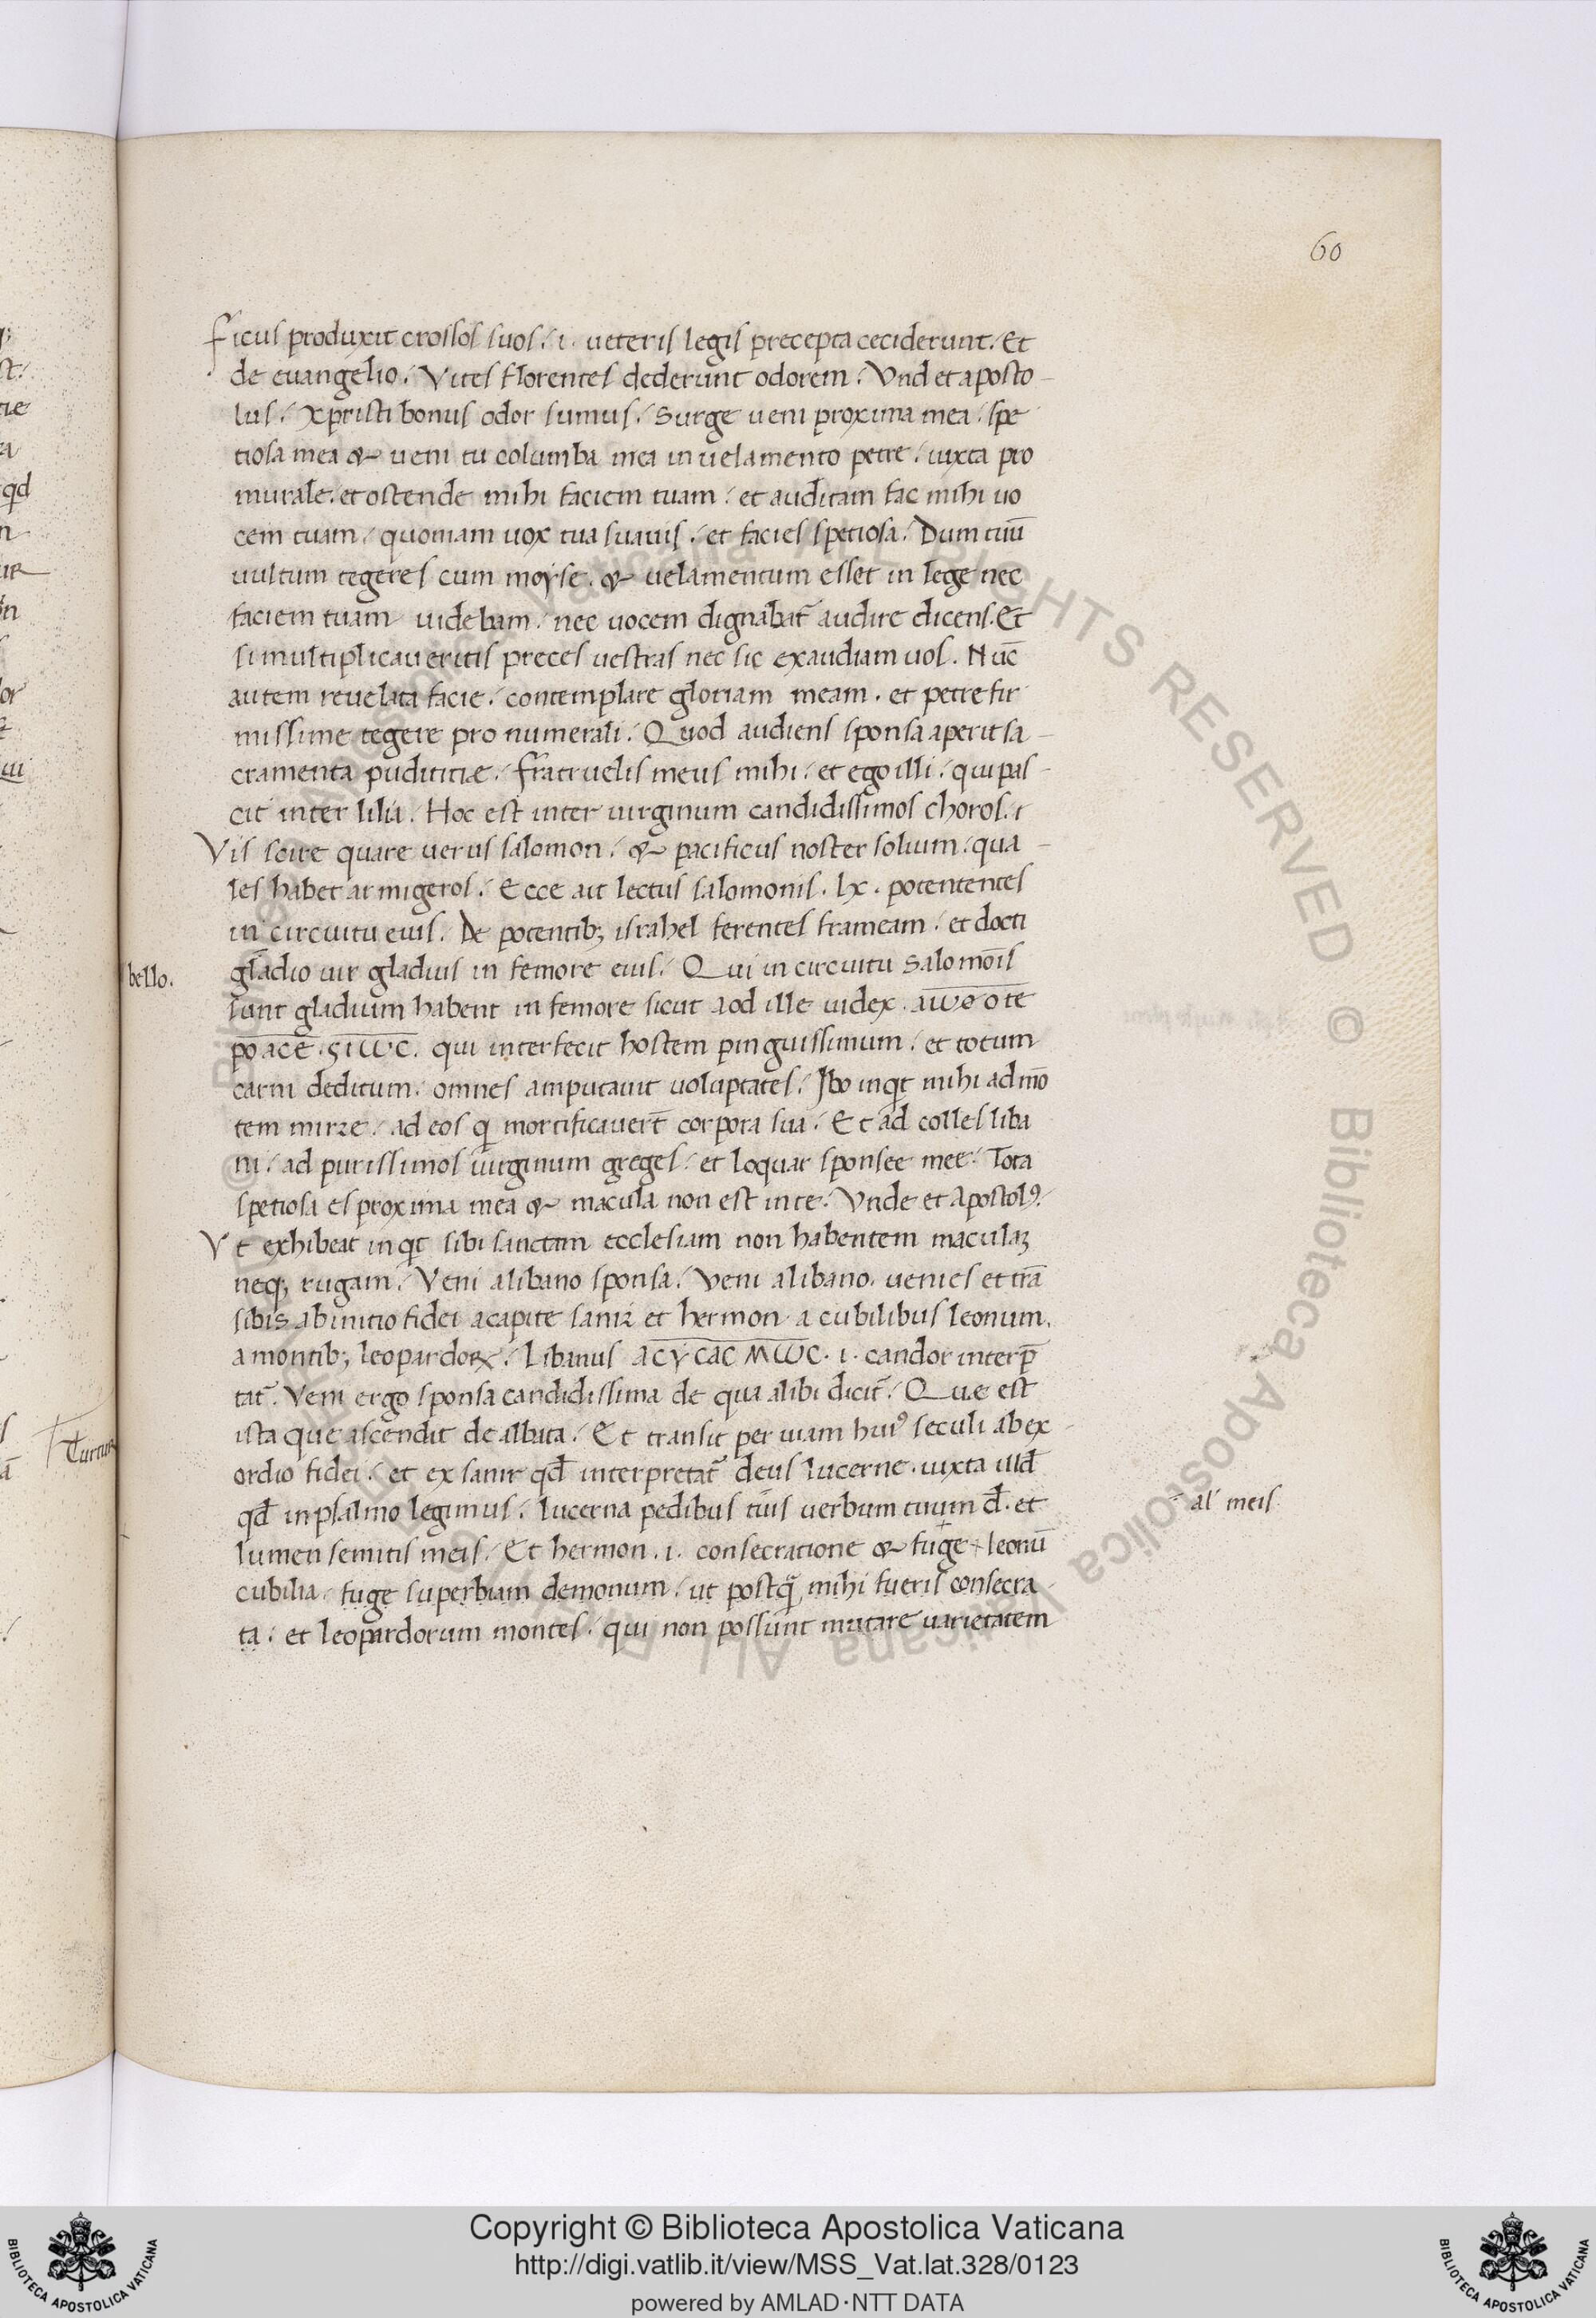 60
Ficus produxit crossos suos. i. ueteris legis precepta ceciderunt. Et
de euangelio. Vites florentes dederunt odorem. Vnd et aposto-
lus. Xpristi bonus odor sumus. Surge ueni proxima mea. spe
tiosa mea & ueni tu columba mea in uelamento petre. iuxta pro
murale. et ostende mihi faciem tuam. et auditam fac mihi uo
cem tuam. quoniam uox tua suauis. et facies spetiosa. Dum tuū
uultum tegeres cum moyse. & uelamentum esset in lege nec
faciem tuam uidebam. nec uocem dignabat̄ audire dicens. Et
si multiplicaueritis preces uestras nec sic exaudiam uos. Nūc
autem reuelata facie. contemplare gloriam meam. et petre fir
missime tegere pro numerali. Quod audiens sponsa aperit sa-
cramenta pudititiæ. Fratruelis meus mihi. et ego illi. qui pas-
cit inter lilia. Hoc est inter uirginum candidissimos choros.
Vis scire quare uerus salomon. & pacificus noster solium. qua-
les habet armigeros. Ecce ait lectus salomonis. lx. potententes
in circuitu eius. De potentib; israhel ferentes frameam. et docti
bello. gladio uir gladius in femore eius. Qui in circuitu salomōis
sunt gladium habent in femore sicut aod ille iudex. awοοτε
ποαcε. ςιwc. qui interfecit hostem pinguissimum. et totum
carni deditum. omnes amputauit uoluptates. Ibo inqt mihi ad mō
tem mirre. ad eos q mortificauert̄ corpora sua. Et ad colles liba
ni. ad purissimos uirginum greges. et loquar sponsee mee. Tota
spetiosa es proxima mea & macula non est in te. Vnde et apostolꝰ.
Vt exhibeat inqt sibi sanctam ecclesiam non habentem maculaꝫ
neq; rugam. Veni a libano sponsa. Veni a libano. uenies et trā
sibis ab initio fidei a capite sanir et hermon a cubilibus leonum.
a montib; leopardoꝝ. Libanus ΑCΥCΑC ΜWC. i. candor interp̄
tat̄. Veni ergo sponsa candidissima de qua alibi dicit̄. Que est
ista que ascendit dealbata. Et transit per uiam huiꝰ seculi ab ex-
ordio fidei. et ex sanir qd̄ interpretat̄ deus lucerne. iuxta illd̄
qd̄ in psalmo legimus. lucerna pedibus tuis uerbum tuum d̄. et
al' meis
lumen semitis meis. Et hermon. i. consecratione & fuge + leonū
cubilia. fuge superbiam demonum. ut postq̄ mihi fueris consecra-
ta. et leopardorum montes. qui non possunt mutare uarietatem
Turtur
Copyright © Biblioteca Apostolica Vaticana
http://digi.vatlib.it/view/MSS_Vat.lat.328/0123
powered by AMLAD·NTT DATA
BIBLIOTECA APOSTOLICA VATICANA
BIBLIOTECA APOSTOLICA VATICANA